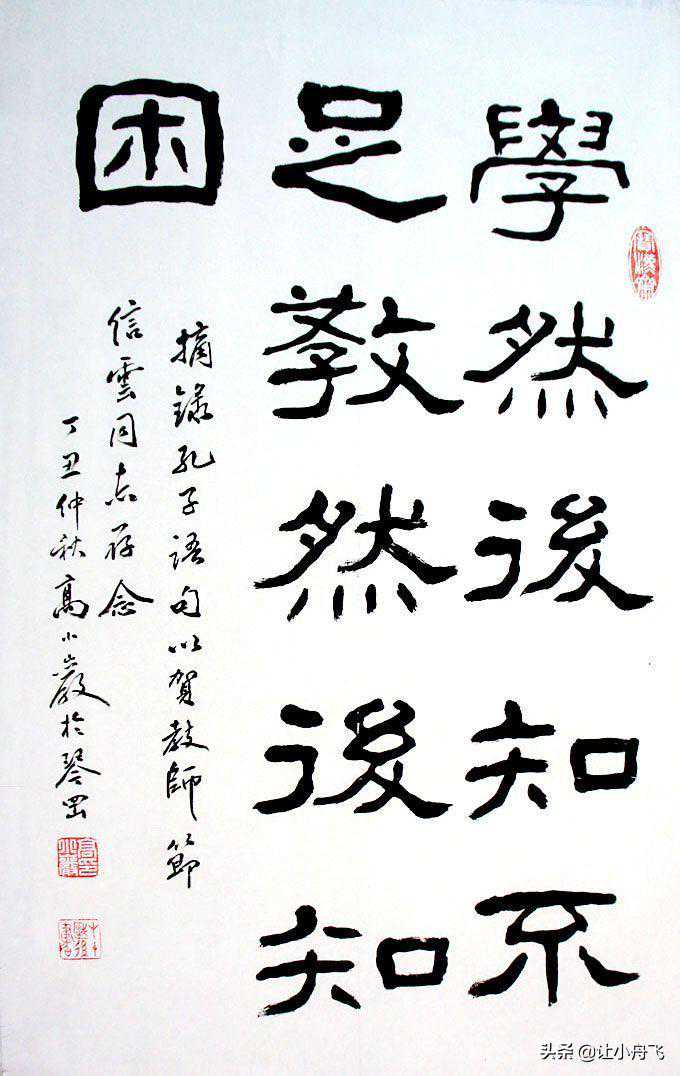 學然後知不
足教然後知
困
摘錄孔子語句以賀教師節
信雲同志存念
丁丑仲秋高小巖於琴岡
头条 @让小舟飞